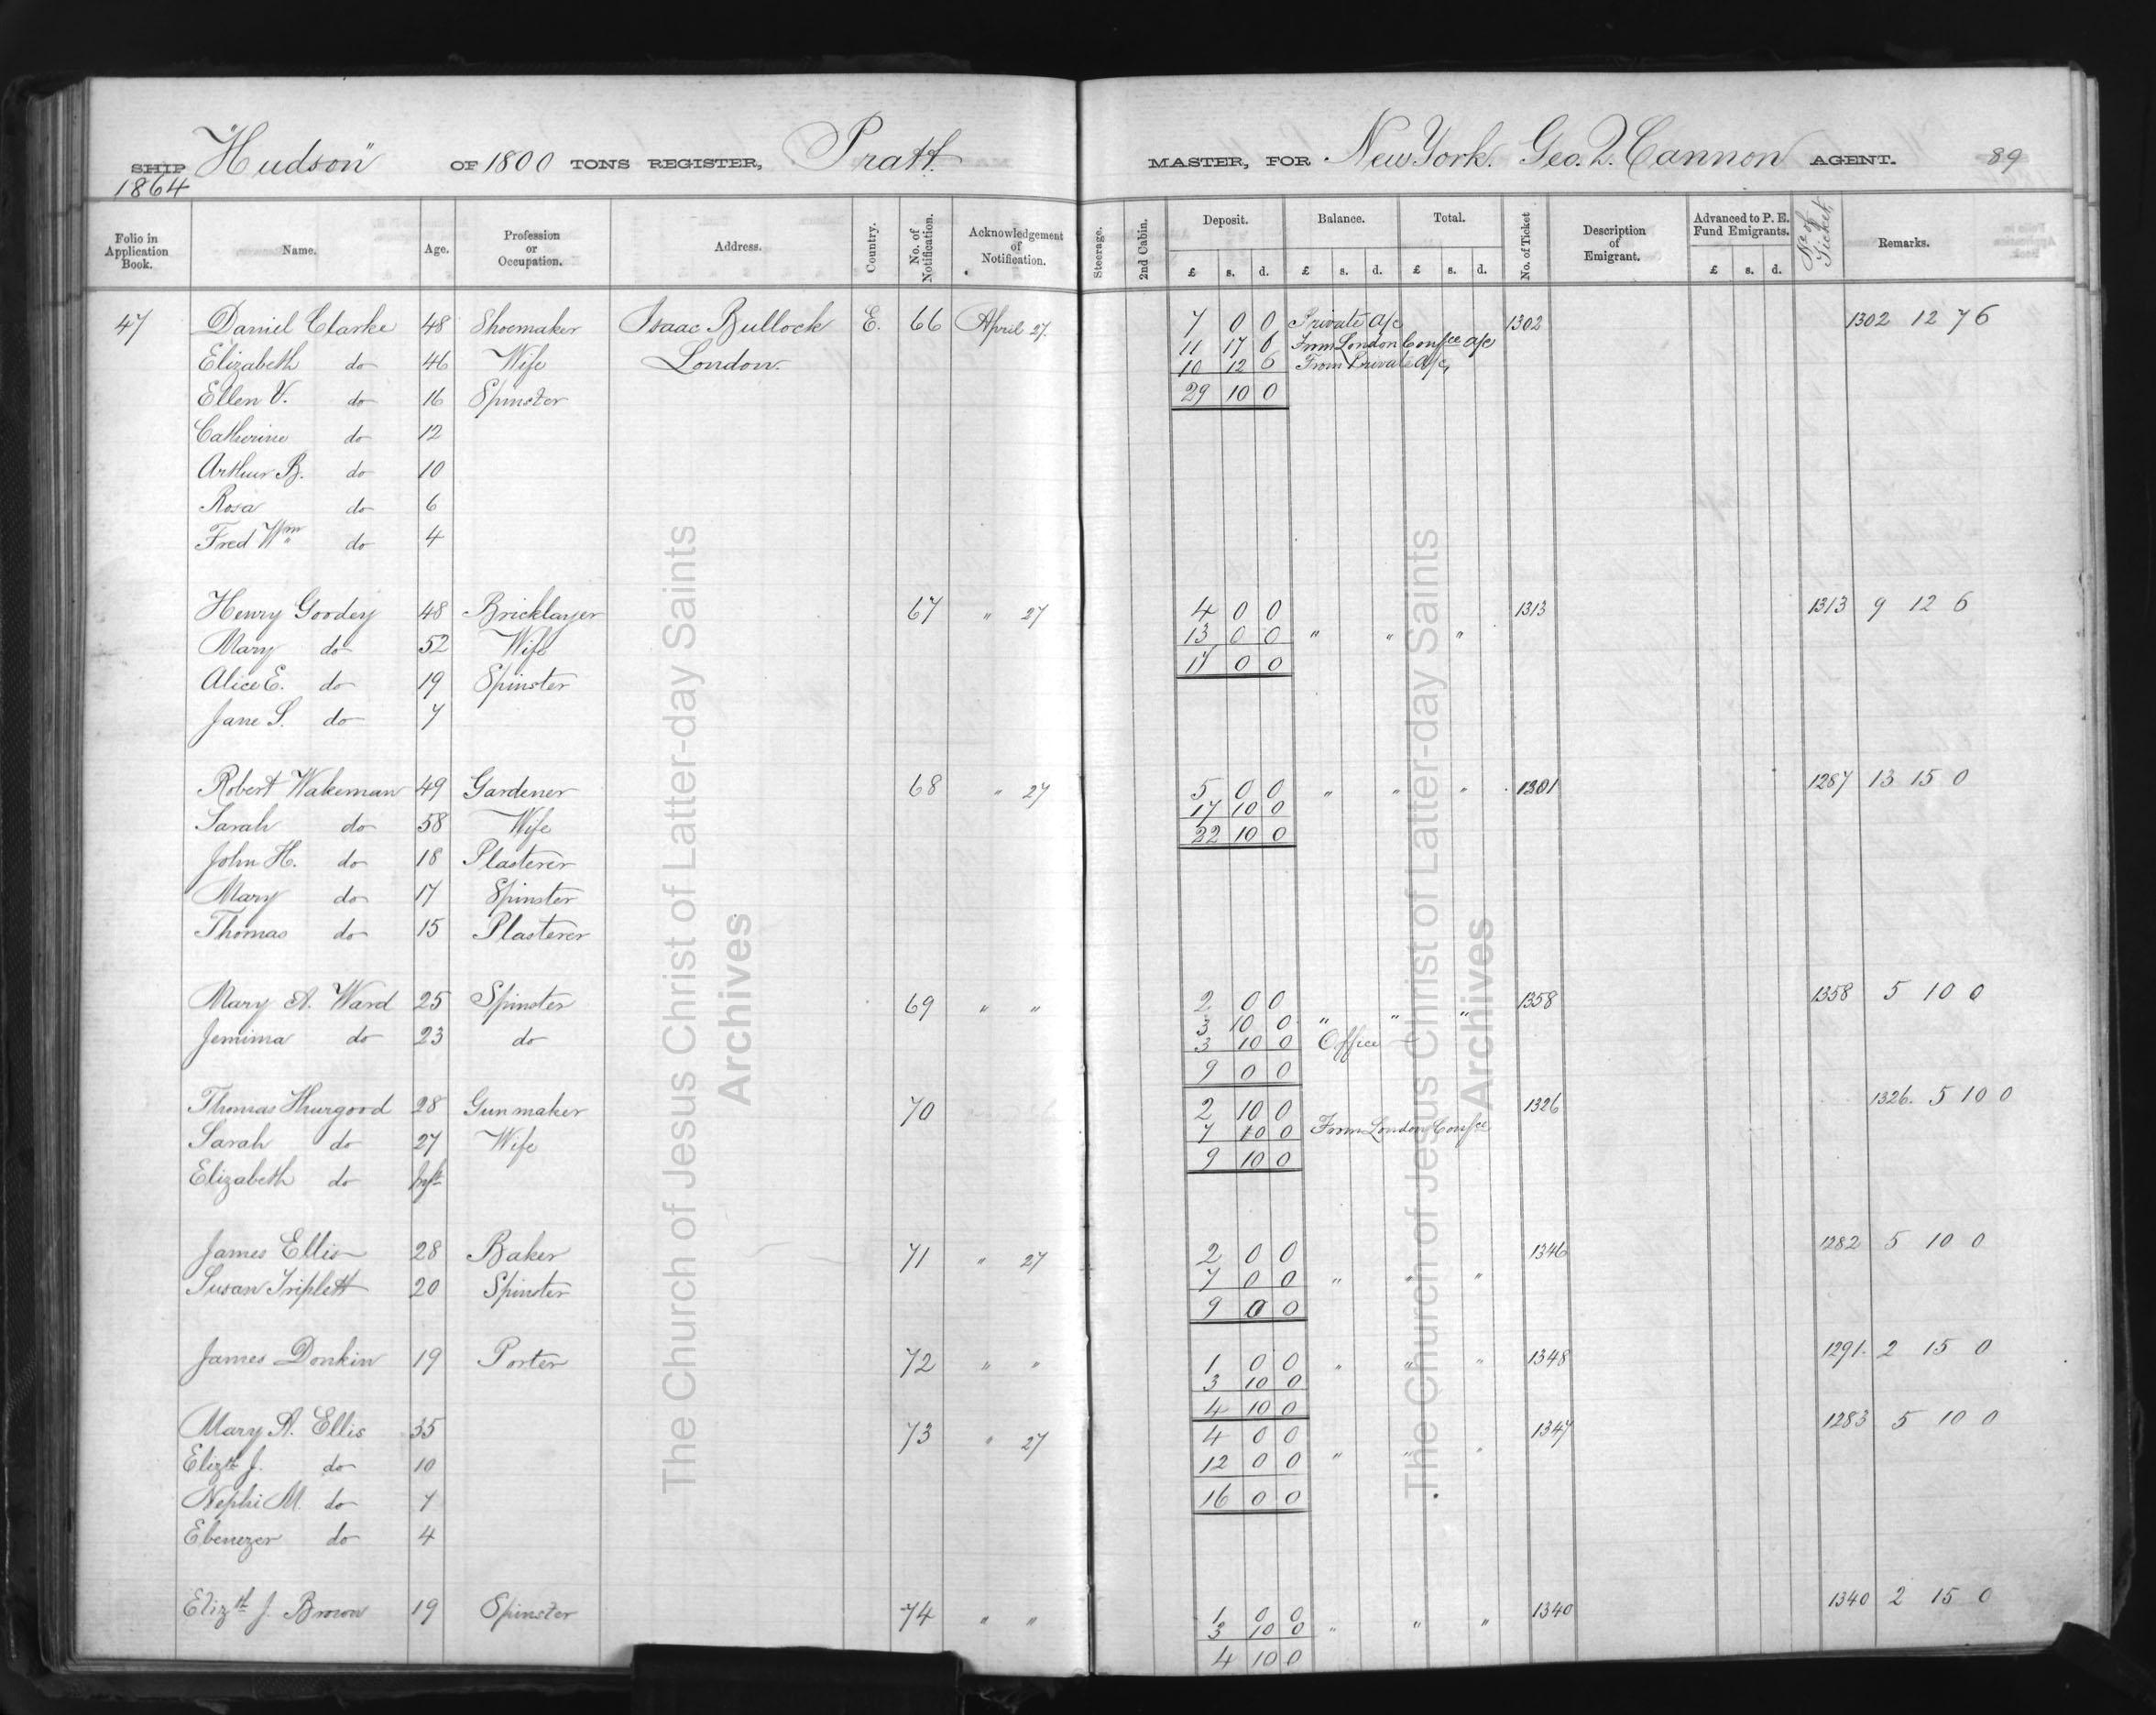 SHIP "Hudson" OF 1800 TONS REGISTER, Pratt MASTER, FOR New York. Geo. Q. Cannon AGENT. 89
1864
Folio in Application Book. Name. Age. Profession or Occupation. Address. Country. No. of Notification. Acknowledgement of Notification. Steerage. 2nd Cabin. Deposit. £ s. d. Balance. £ s. d. Total. £ s. d. No. of Ticket Description of Emigrant. Advanced to P. E. Fund Emigrants. £ s. d. No of Ticket Remarks.
47 Daniel Clarke 48 Shoemaker Isaac Bullock E. 66 April 27. 7 0 0 Private a/c 1302 1302 12 7 6
11 17 6 From London Confce a/c
Elizabeth do 46 Wife London. 10 12 6 From Private a/c
Ellen V. do 16 Spinster 29 10 0
Catherine do 12
Arthur B. do 10
Rosa do 6
Fred Wm do 4
Henry Goodey 48 Bricklayer 67 " 27 4 0 0 1313 1313 9 12 6
Mary do 52 Wife 13 0 0 " " "
Alice E. do 19 Spinster 17 0 0
Jane S. do 7
Robert Wakeman 49 Gardener 68 " 27 5 0 0 " " " 1301 1287 13 15 0
17 10 0
Sarah do 58 Wife 22 10 0
John H. do 18 Plasterer
Mary do 17 Spinster
Thomas do 15 Plasterer
Mary A. Ward 25 Spinster 69 " " 2 0 0 1358 1358 5 10 0
3 10 0 " " "
Jemima do 23 do 3 10 0 Office
9 0 0
Thomas Thurgood 28 Gun maker 70 2 10 0 1326 1326. 5 10 0
7 10 0 From London Confce
Sarah do 27 Wife 9 10 0
Elizabeth do Inft
James Ellis 28 Baker 71 " 27 2 0 0 1346 1282 5 10 0
Susan Triplett 20 Spinster 7 0 0 " " "
9 0 0
James Donkin 19 Porter 72 " " 1 0 0 " " " 1348 1291. 2 15 0
3 10 0
4 10 0
Mary A. Ellis 35 73 " 27 4 0 0 1347 1283 5 10 0
Elizth J. do 10 12 0 0 " " "
Nephi M. do 7 16 0 0
Ebenezer do 4
Elizth J. Brown 19 Spinster 74 " " 1 0 0 1340 1340 2 15 0
3 10 0 " " "
4 10 0
The Church of Jesus Christ of Latter-day Saints
Archives
The Church of Jesus Christ of Latter-day Saints
Archives